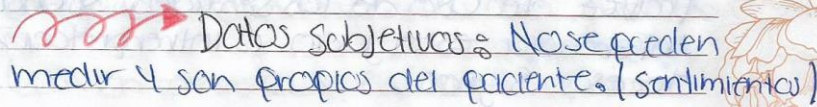 Datos Subjetivos: No se pueden
medir y son propios del paciente. (Sentimientos)